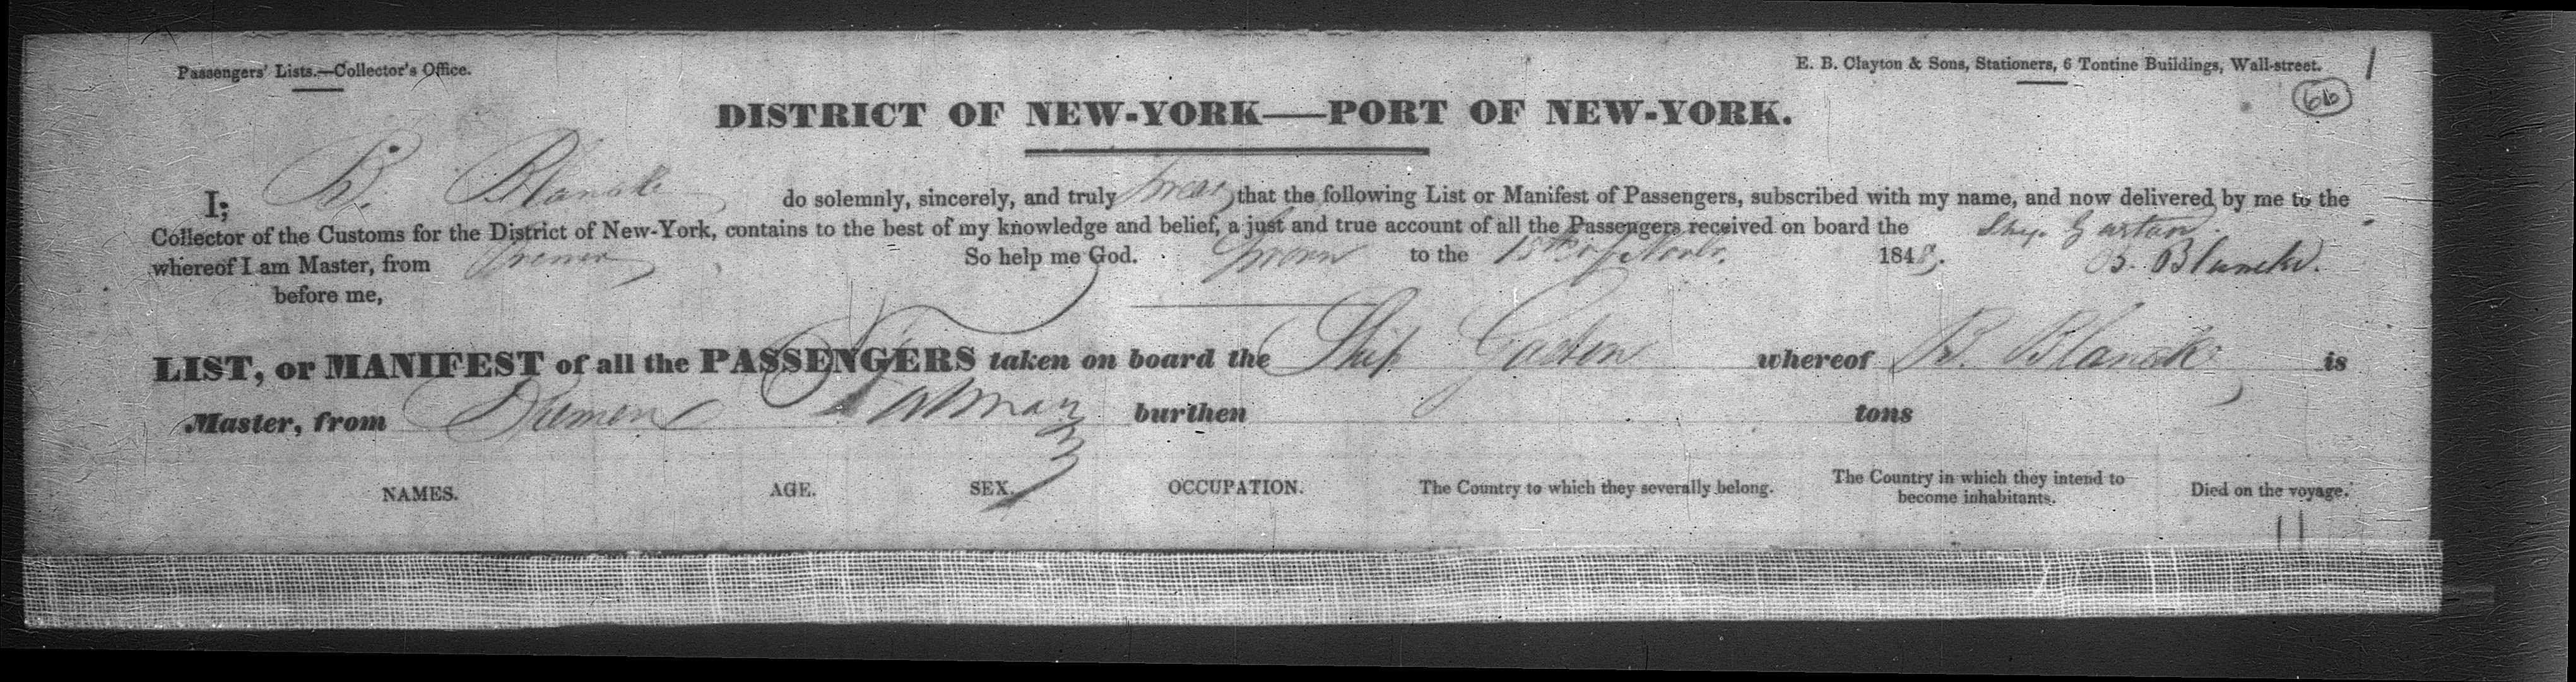 Passengers' Lists.—Collector's Office.
E. B. Clayton & Sons, Stationers, 6 Tontine Buildings, Wall-street. 1
66
DISTRICT OF NEW-YORK—PORT OF NEW-YORK.
I; B. Blancke do solemnly, sincerely, and truly swear that the following List or Manifest of Passengers, subscribed with my name, and now delivered by me to the
Collector of the Customs for the District of New-York, contains to the best of my knowledge and belief, a just and true account of all the Passengers received on board the Ship Gaston.
whereof I am Master, from Bremen So help me God. Sworn to the 15th of 1848. B. Blancke.
before me,
LIST, or MANIFEST of all the PASSENGERS taken on board the Ship Gaston whereof B. Blancke is
Master, from Bremen burthen tons
NAMES. AGE. SEX. OCCUPATION. The Country to which they severally belong. The Country in which they intend to become inhabitants. Died on the voyage.
11